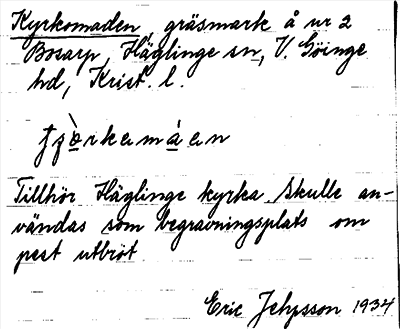 Kyrkomaden, gräsmark å nr 2
Bosarp, Häglinge sn, V. Göinge
hd, Krist. l.
Tillhör Häglinge kyrka. Skulle an-
vändas som begravningsplats om
pest utbröt
Eric Jehpsson 1934